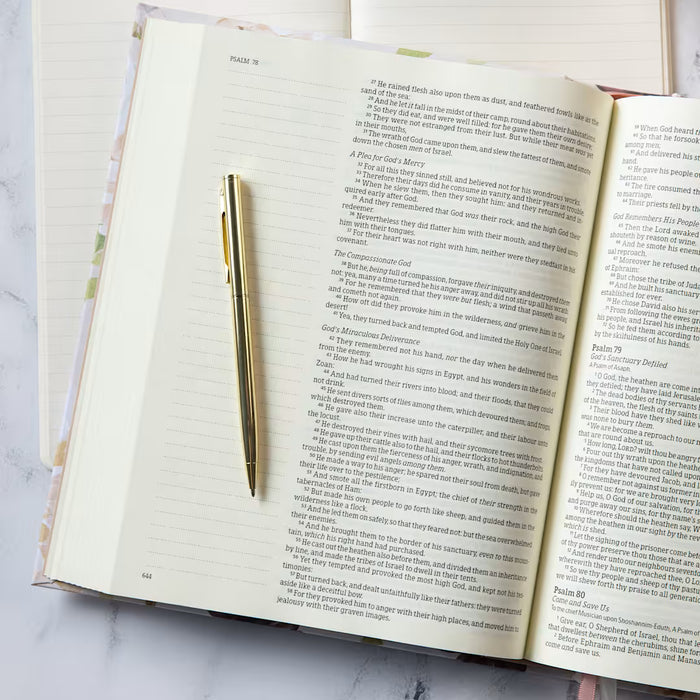 PSALM 78
27 He rained flesh also upon them as dust, and feathered fowls like as the
sand of the sea:
28 And he let it fall in the midst of their camp, round about their habitations.
29 So they did eat, and were well filled: for he gave them their own desire;
30 They were not estranged from their lust. But while their meat was yet
in their mouths,
31 The wrath of God came upon them, and slew the fattest of them, and smote
down the chosen men of Israel.
A Plea for God's Mercy
32 For all this they sinned still, and believed not for his wondrous works.
33 Therefore their days did he consume in vanity, and their years in trouble.
34 When he slew them, then they sought him: and they returned and in-
quired early after God.
35 And they remembered that God was their rock, and the high God their
redeemer.
36 Nevertheless they did flatter him with their mouth, and they lied unto
him with their tongues.
37 For their heart was not right with him, neither were they stedfast in his
covenant.
The Compassionate God
38 But he, being full of compassion, forgave their iniquity, and destroyed them
not: yea, many a time turned he his anger away, and did not stir up all his wrath.
39 For he remembered that they were but flesh; a wind that passeth away,
and cometh not again.
40 How oft did they provoke him in the wilderness, and grieve him in the
desert!
41 Yea, they turned back and tempted God, and limited the Holy One of Israel.
God's Miraculous Deliverance
42 They remembered not his hand, nor the day when he delivered them
from the enemy.
43 How he had wrought his signs in Egypt, and his wonders in the field of
Zoan:
44 And had turned their rivers into blood; and their floods, that they could
not drink.
45 He sent divers sorts of flies among them, which devoured them; and frogs,
which destroyed them.
46 He gave also their increase unto the caterpiller, and their labour unto
the locust.
47 He destroyed their vines with hail, and their sycomore trees with frost.
48 He gave up their cattle also to the hail, and their flocks to hot thunderbolts.
49 He cast upon them the fierceness of his anger, wrath, and indignation, and
trouble, by sending evil angels among them.
50 He made a way to his anger; he spared not their soul from death, but gave
their life over to the pestilence;
51 And smote all the firstborn in Egypt; the chief of their strength in the
tabernacles of Ham:
52 But made his own people to go forth like sheep, and guided them in the
wilderness like a flock.
53 And he led them on safely, so that they feared not: but the sea overwhelmed
their enemies.
54 And he brought them to the border of his sanctuary, even to this moun-
tain, which his right hand had purchased.
55 He cast out the heathen also before them, and divided them an inheritance
by line, and made the tribes of Israel to dwell in their tents.
56 Yet they tempted and provoked the most high God, and kept not his tes-
timonies:
57 But turned back, and dealt unfaithfully like their fathers: they were turned
aside like a deceitful bow.
58 For they provoked him to anger with their high places, and moved him to
jealousy with their graven images.
644
59 When God heard
60 So that he forsook
among men;
61 And delivered his
hand.
62 He gave his people
heritance.
63 The fire consumed
to marriage.
64 Their priests fell by
God Remembers His People
65 Then the Lord awaked
shouteth by reason of wine.
66 And he smote his enem
ual reproach.
67 Moreover he refused
of Ephraim:
68 But chose the tribe of Juda
69 And he built his sanctuary
established for ever.
70 He chose David also his
71 From following the ewes
his people, and Israel his inherit
72 So he fed them according to
by the skilfulness of his hands.
Psalm 79
God's Sanctuary Defiled
A Psalm of Asaph.
1 O God, the heathen are come
they defiled; they have laid Jerusale
2 The dead bodies of thy servants
of the heaven, the flesh of thy saints
3 Their blood have they shed like
was none to bury them.
4 We are become a reproach to our
that are round about us.
5 How long, LORD? wilt thou be angry
6 Pour out thy wrath upon the
the kingdoms that have not called upon
7 For they have devoured Jacob, and
8 O remember not against us former
ily prevent us: for we are brought very
9 Help us, O God of our salvation, for
and purge away our sins, for thy name's
10 Wherefore should the heathen say,
among the heathen in our sight by the
which is shed.
11 Let the sighing of the prisoner come
of thy power preserve thou those that are
12 And render unto our neighbours sevenfo
wherewith they have reproached thee, O
13 So we thy people and sheep of thy pastu
we will shew forth thy praise to all generati
Psalm 80
Come and Save Us
To the chief Musician upon Shoshannim-Eduth, A Psalm
1 Give ear, O Shepherd of Israel, thou that
that dwellest between the cherubims, shine
2 Before Ephraim and Benjamin and Manas
come and save us.